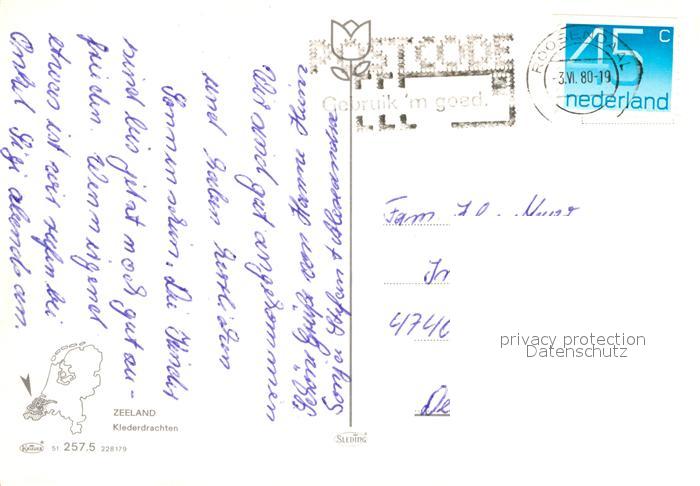 POSTCODE
Gebruik 'm goed.
ROOSENDAAL
-3.VI. 80-19
45 c
nederland
Wir sind gut angekommen
und haben herrlichen
Sonnenschein. Die Kinder
sind bis jetzt noch gut zu-
frieden. Wenn irgend
etwas ist wir rufen bei
Onkel Sigi abends an.
Grüße aus
Fam
474
privacy protection
Datenschutz
ZEELAND
Klederdrachten
KRÜGER 51 257.5 228179
SLEDING